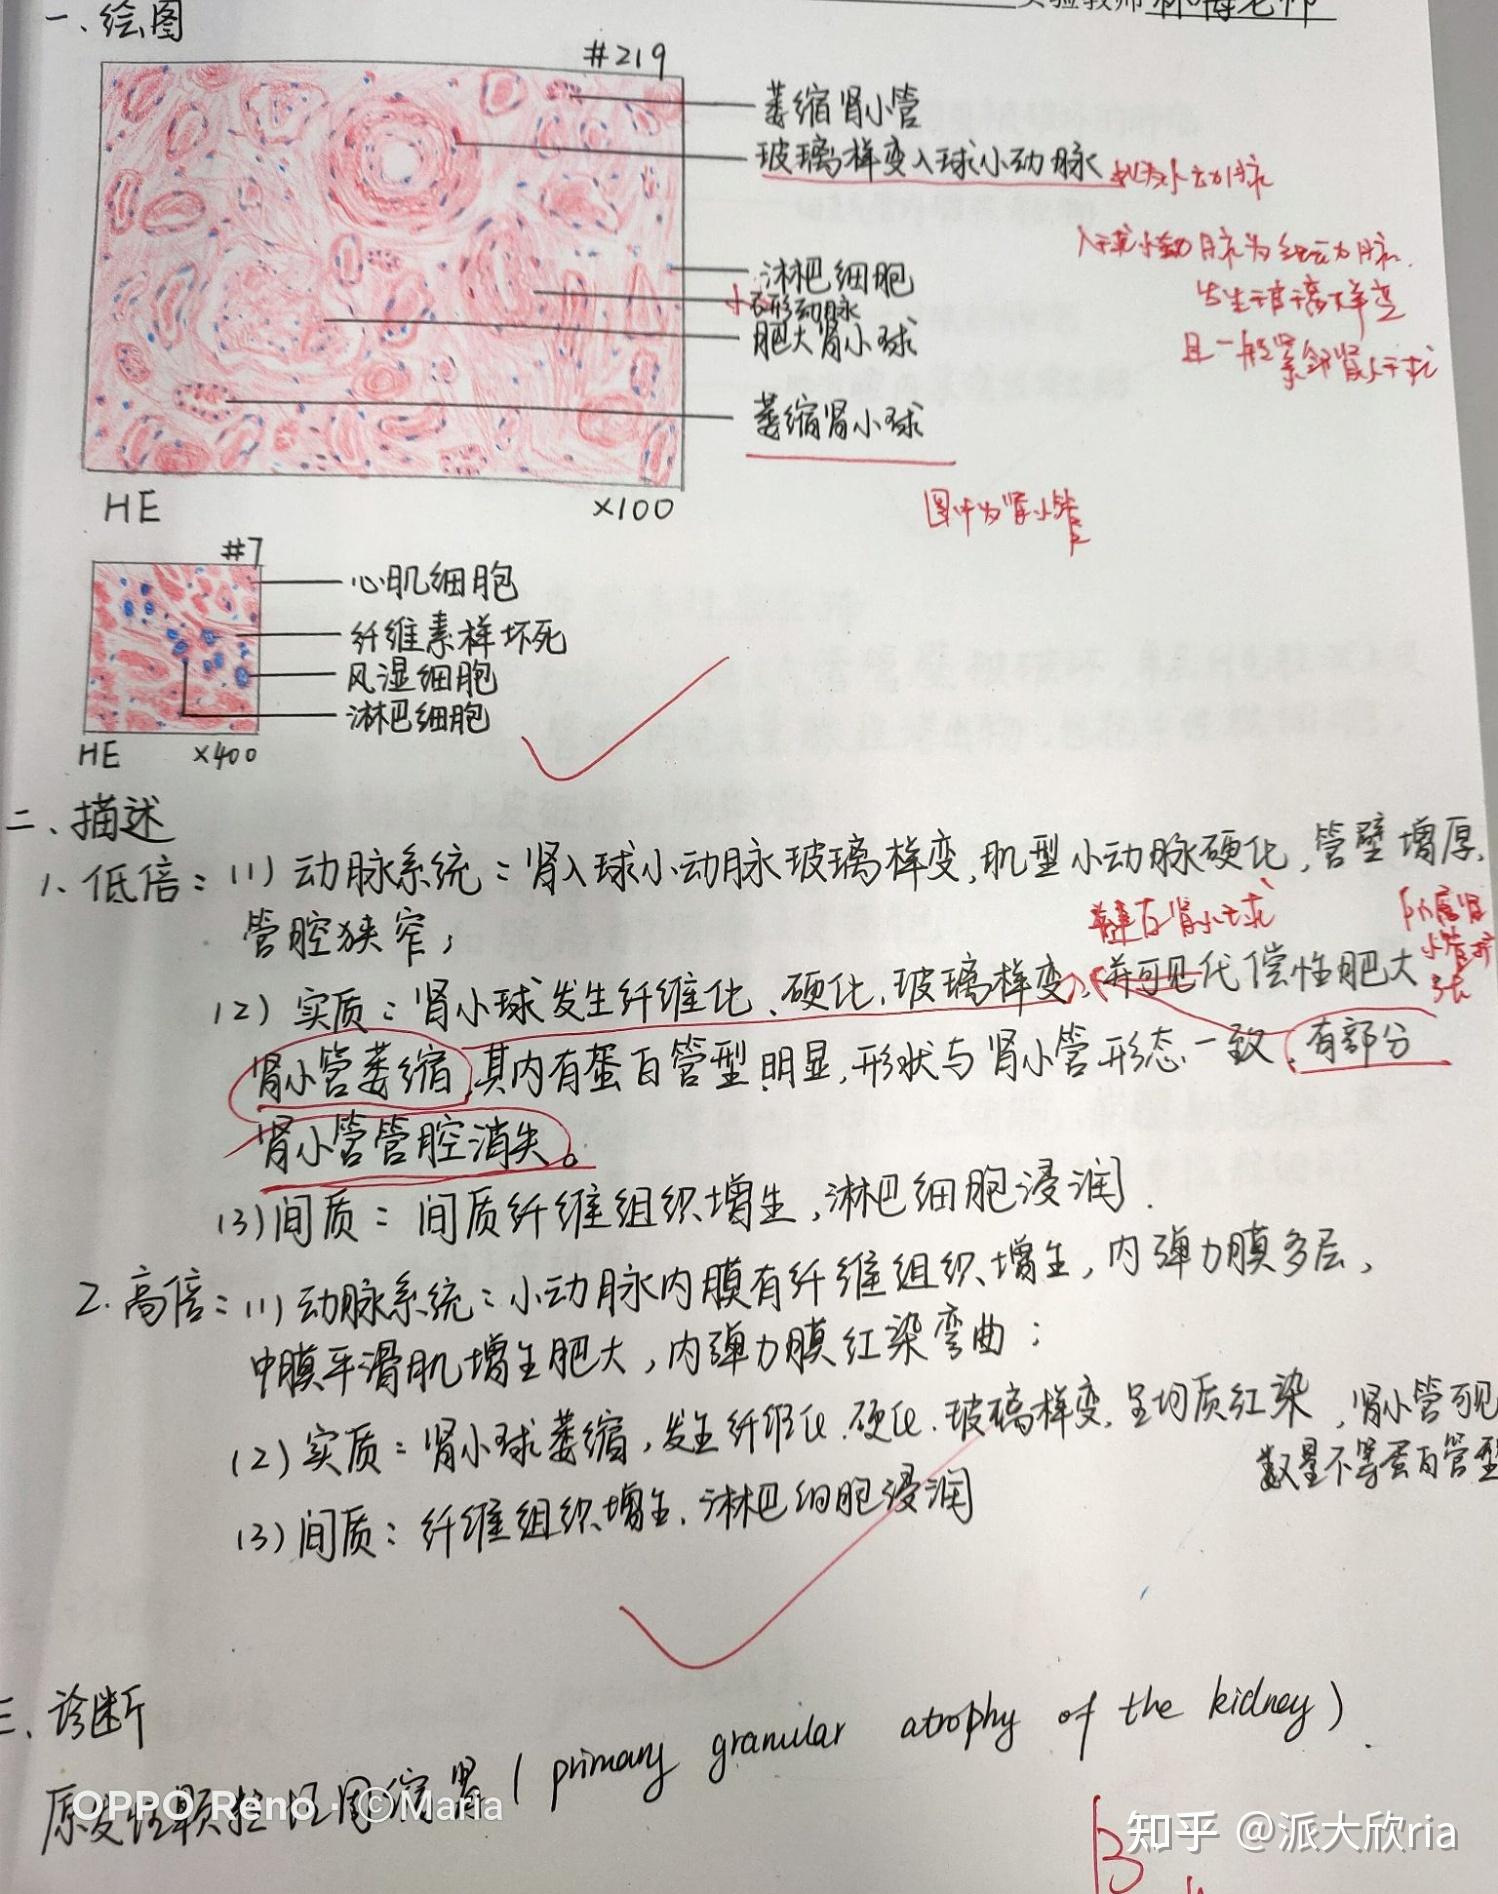 一、绘图
实验教师
#219
萎缩肾小管
玻璃样变入球小动脉
小动脉
入球小动脉为细动脉.
发生玻璃样变
且一般紧邻肾小球
淋巴细胞
小
弓形动脉
肥大肾小球
萎缩肾小球
图中为肾小管
HE ×100
#7
心肌细胞
纤维素样坏死
风湿细胞
淋巴细胞
HE ×400
二、描述
1、低倍：(1) 动脉系统：肾入球小动脉玻璃样变，肌型小动脉硬化，管壁增厚，
管腔狭窄；
健存肾小球
所属肾
小管扩
张
(2) 实质：肾小球发生纤维化、硬化、玻璃样变，并可见代偿性肥大
肾小管萎缩，其内有蛋白管型明显，形状与肾小管形态一致，有部分
肾小管管腔消失。
(3) 间质：间质纤维组织增生，淋巴细胞浸润.
2. 高倍：(1) 动脉系统：小动脉内膜有纤维组织增生，内弹力膜多层，
中膜平滑肌增生肥大，内弹力膜红染弯曲；
(2) 实质：肾小球萎缩，发生纤维化、硬化、玻璃样变，呈均质红染，肾小管可见
数量不等蛋白管型
(3) 间质：纤维组织增生，淋巴细胞浸润
三、诊断
原发性颗粒性固缩肾 ( primary granular atrophy of the kidney ) .
OPPO Reno · ©Maria
B
知乎 @派大欣ria